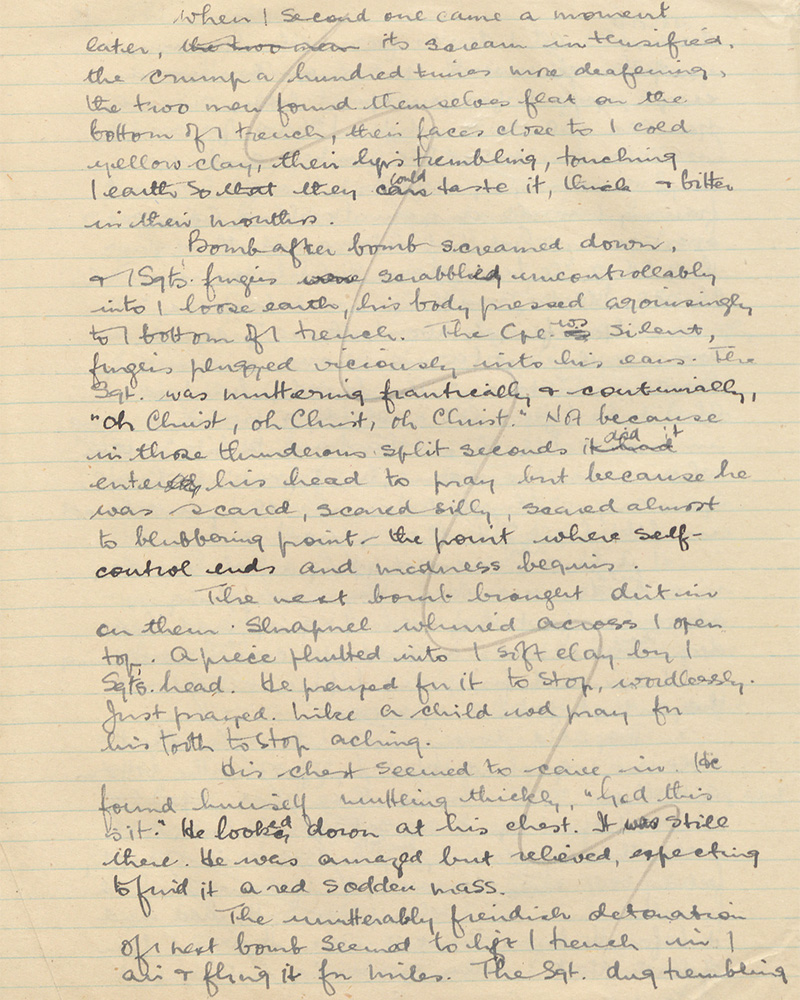 When / second one came a moment
later, the two men its scream intensified,
the crump a hundred times more deafening,
the two men found themselves flat on the
bottom of / trench, their faces close to / cold
yellow clay, their lips trembling, touching
/ earth so that they could taste it, thick + bitter
in their mouths.
Bomb after bomb screamed down,
+ / Sgts. fingers were scrabbled uncontrollably
into / loose earth, his body pressed agonisingly
to / bottom of / trench. The Cpl. was silent,
fingers plugged viciously into his ears. The
Sgt. was muttering frantically + continually,
"oh Christ, oh Christ, oh Christ." Not because
in those thunderous split seconds it had did it
enter his head to pray but because he
was scared, scared silly, scared almost
to blubbering point - the point where self-
control ends and madness begins.
The next bomb brought dirt in
on them. Shrapnel whirred across / open
top. A piece phutted into / soft clay by /
Sgts. head. He prayed for it to stop, wordlessly.
Just prayed. Like a child wod pray for
his tooth to stop aching.
His chest seemed to cave in. He
found himself muttering thickly, "had this
is it." He looked down at his chest. It was still
there. He was amazed but relieved, expecting
to find it a red sodden mass.
The unutterably fiendish detonation
of / next bomb seemed to lift / trench in /
air + fling it for miles. The Sgt. dug trembling